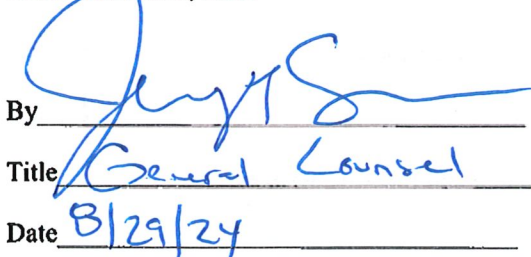 By
Title General Counsel
Date 8/29/24